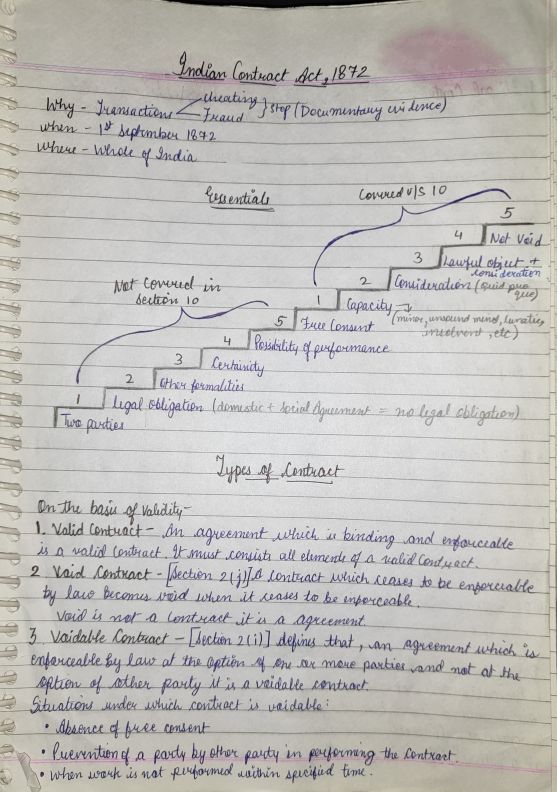 Indian Contract Act, 1872
Why - Transactions < cheating Fraud } stop (Documentary evidence)
when - 1st september 1872
where - Whole of India
Essentials
Covered U/S 10
5
Not Void
4
Lawful object + consideration
3
Consideration (quid pro quo)
2
Capacity → (minor, unsound mind, lunatics, insolvent, etc)
1
Free Consent
Not Covered in
section 10
5
Possibility of performance
4
Certainity
3
Other formalities
2
legal obligation (domestic + social Agreement = no legal obligation)
1
Two parties
Types of Contract
On the basis of validity-
1. Valid Contract - An agreement which is binding and enforceable
is a valid contract. It must consists all elements of a valid contract.
2 Void Contract - [Section 2(j)] A contract which ceases to be enforceable
by law becomes void when it ceases to be enforceable.
Void is not a contract it is a agreement.
3 Voidable Contract - [Section 2(i)] defines that, an agreement which is
enforceable by law at the option of one or more parties and not at the
option of other party it is a voidable contract.
Situations under which contract is voidable:
• Absence of free consent
• Prevention of a party by other party in performing the contract.
• when work is not performed within specified time.